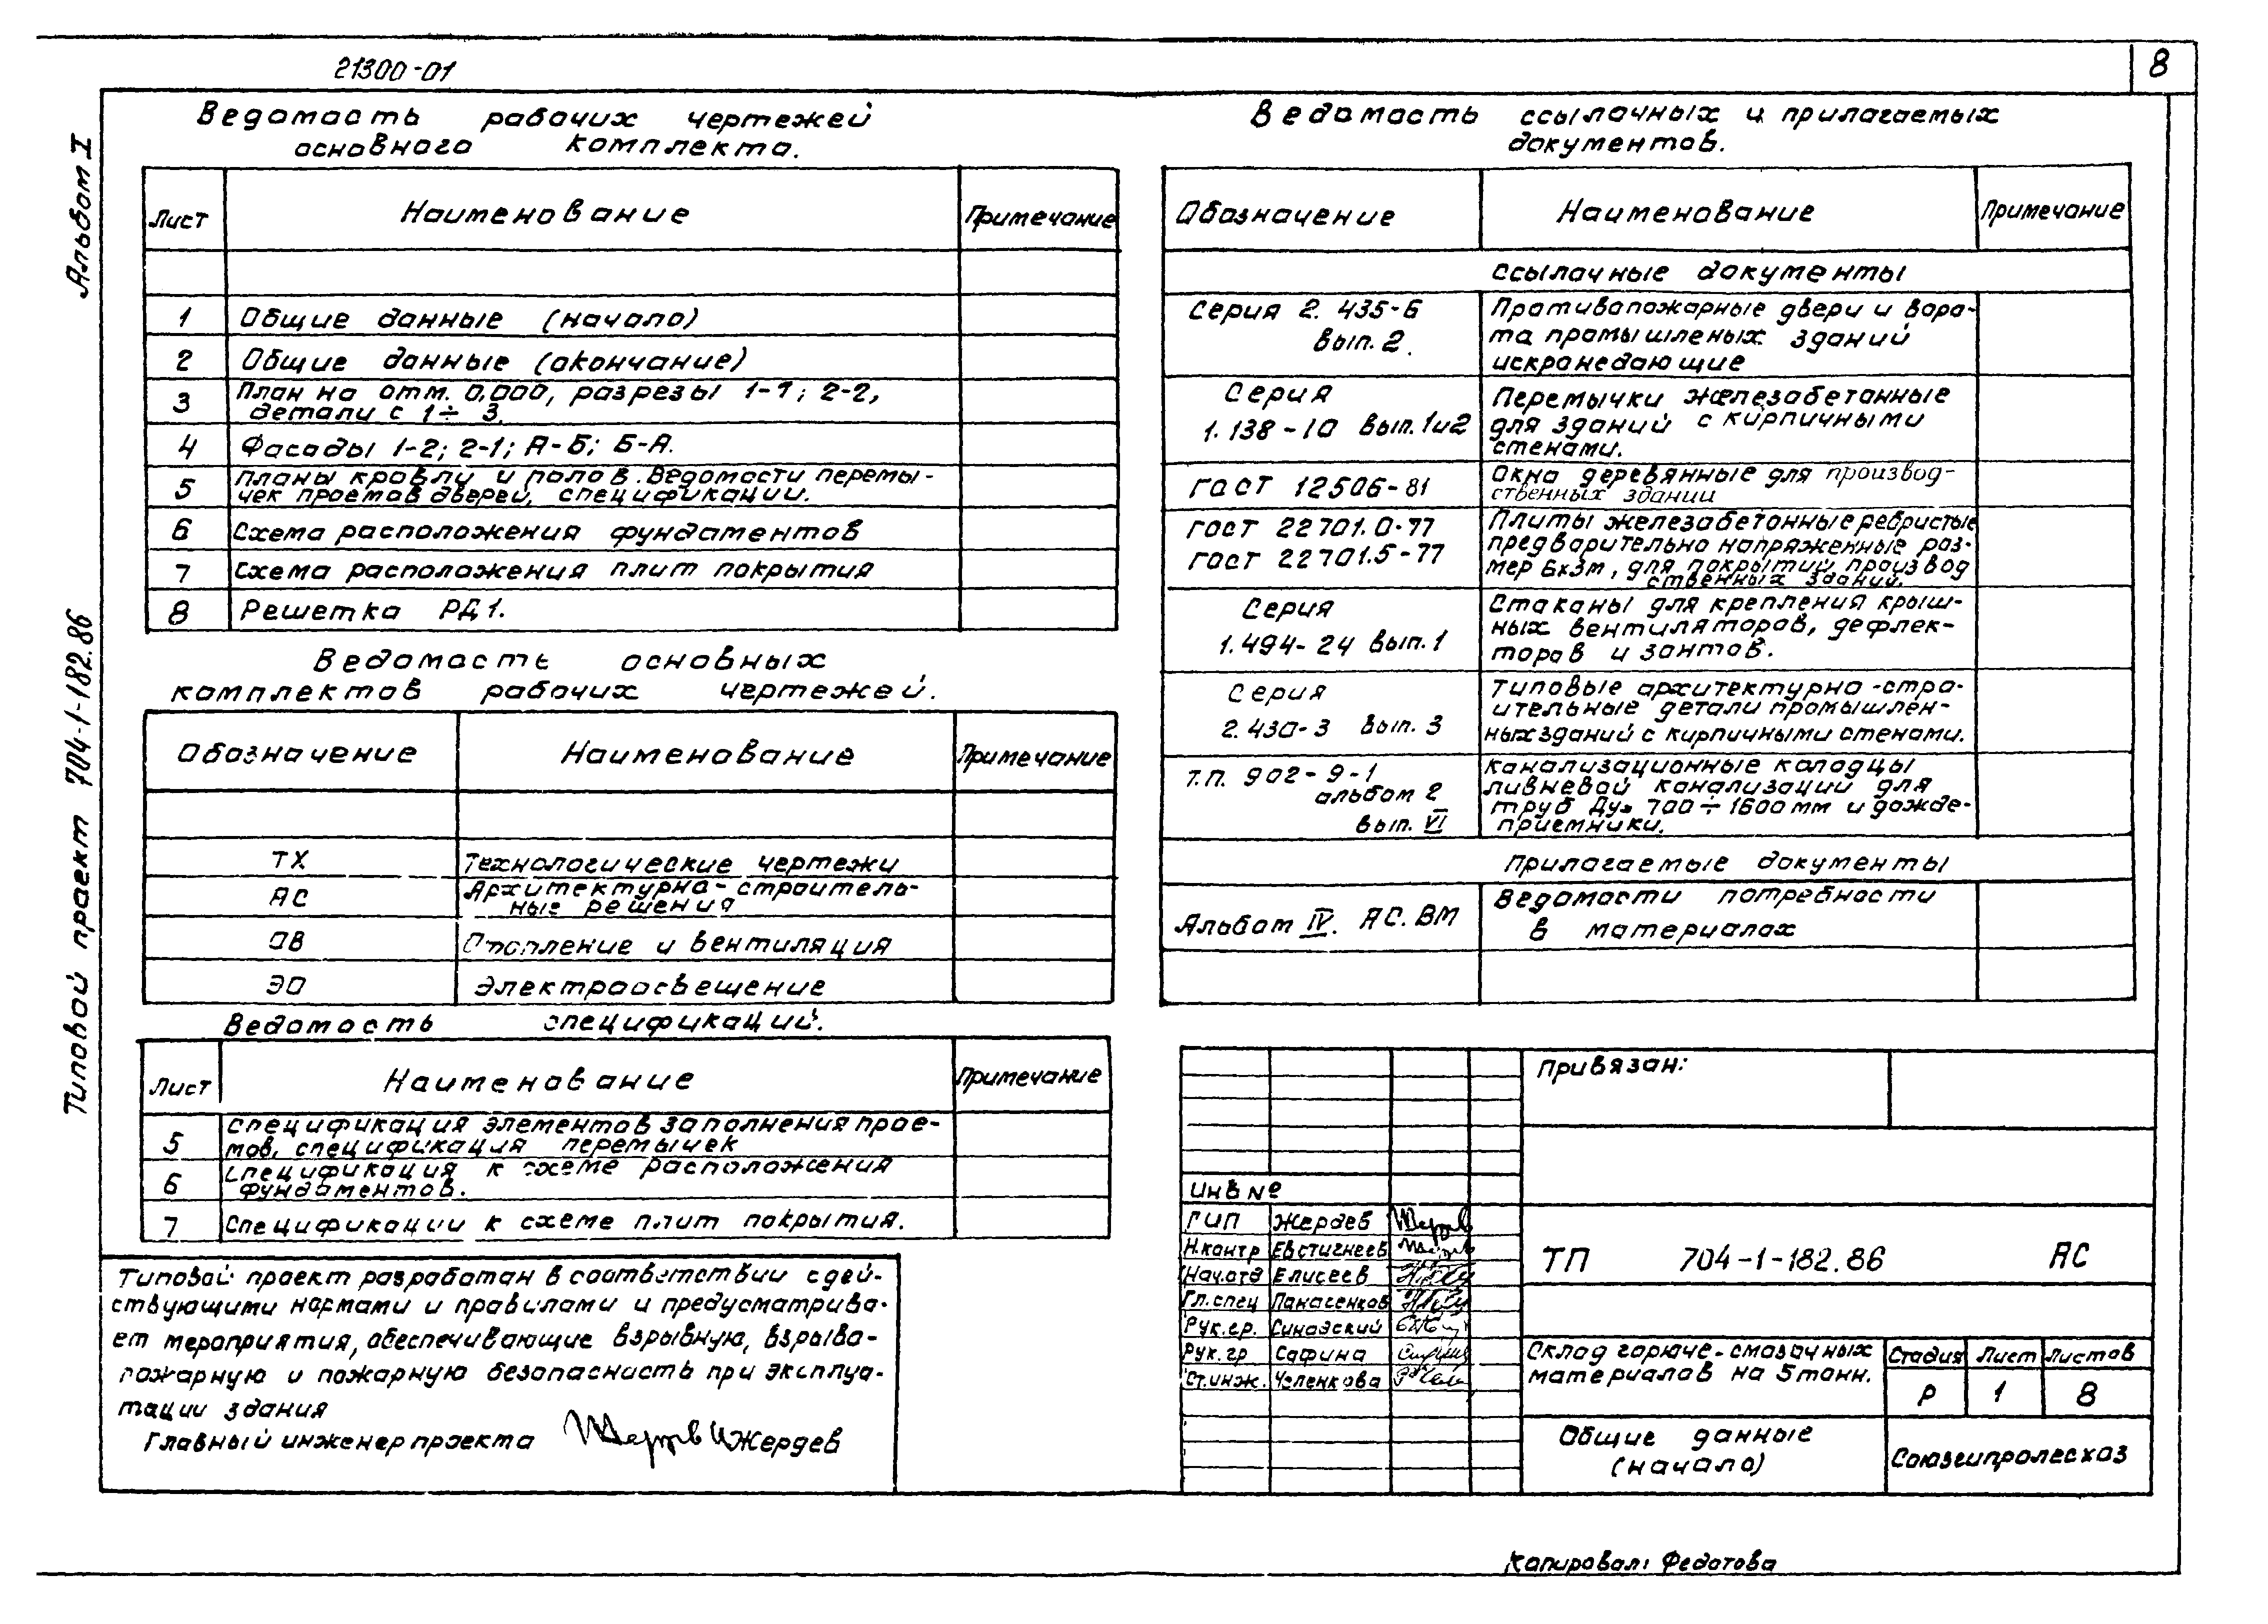 21300-01
8
Альбом I
Типовой проект 704-1-182.86
Ведомость рабочих чертежей
основного комплекта.
Лист Наименование Примечание
1 Общие данные (начало)
2 Общие данные (окончание)
3 План на отм. 0,000, разрезы 1-1; 2-2,
детали с 1÷3.
4 Фасады 1-2; 2-1; А-Б; Б-А.
5 Планы кровли и полов. Ведомости перемы-
чек проемов дверей, спецификации.
6 Схема расположения фундаментов
7 Схема расположения плит покрытия
8 Решетка РД1.
Ведомость основных
комплектов рабочих чертежей.
Обозначение Наименование Примечание
ТХ Технологические чертежи
АС Архитектурно-строитель-
ные решения
ОВ Отопление и вентиляция
ЭО Электроосвещение
Ведомость спецификаций.
Лист Наименование Примечание
5 Спецификация элементов заполнения прое-
мов, спецификация перемычек
6 Спецификация к схеме расположения
фундаментов.
7 Спецификации к схеме плит покрытия.
Типовой проект разработан в соответствии с дей-
ствующими нормами и правилами и предусматрива-
ет мероприятия, обеспечивающие взрывную, взрыво-
пожарную и пожарную безопасность при эксплуа-
тации здания
Главный инженер проекта Жердев
Ведомость ссылочных и прилагаемых
документов.
Обозначение Наименование Примечание
Ссылочные документы
Серия 2.435-6
вып.2.
Противопожарные двери и воро-
та промышленых зданий
искронедающие
Серия
1.138-10 вып.1и2
Перемычки железобетонные
для зданий с кирпичными
стенами.
ГОСТ 12506-81
Окна деревянные для производ-
ственных здании
ГОСТ 22701.0-77
ГОСТ 22701.5-77
Плиты железобетонные ребристые
предварительно напряженные раз-
мер 6х3м, для покрытий производ
ственных зданий.
Серия
1.494-24 вып.1
Стаканы для крепления крыш-
ных вентиляторов, дефлек-
торов и зонтов.
Серия
2.430-3 вып.3
Типовые архитектурно-стро-
ительные детали промышлен-
ных зданий с кирпичными стенами.
Т.П. 902-9-1
альбом 2
вып. VI
Канализационные колодцы
ливневой канализации для
труб Ду= 700÷1600мм и дожде-
приемники.
Прилагаемые документы
Альбом IV. АС.ВМ
Ведомости потребности
в материалах
Привязан:
Инв №
ГИП Жердев
Н.контр Евстигнеев
Нач.отд Елисеев
Гл.спец Панасенков
Рук.гр. Синадский
Рук.гр Сафина
Ст.инж. Челенкова
ТП 704-1-182.86 АС
Склад горюче-смазочных
материалов на 5тонн.
Стадия Лист Листов
Р 1 8
Общие данные
(начало)
Союзгипролесхоз
Копировал: Федотова